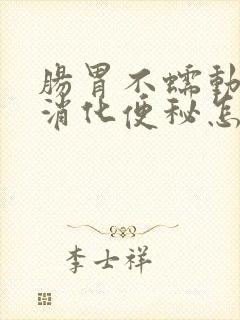 腸胃不蠕動
消化便秘怎
李士祥